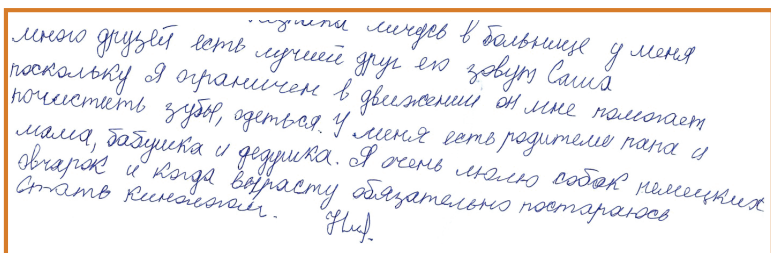 лечусь в больнице у меня
много друзей есть лучшей друг ею зовут Саша
поскольку я ограничен в движении он мне помогает
почистить зубы, одеться. У меня есть родители папа и
мама, бабушка и дедушка. Я очень люлю собак немецких
овчарок и когда вырасту обязательно постараюсь
стать кинологом.